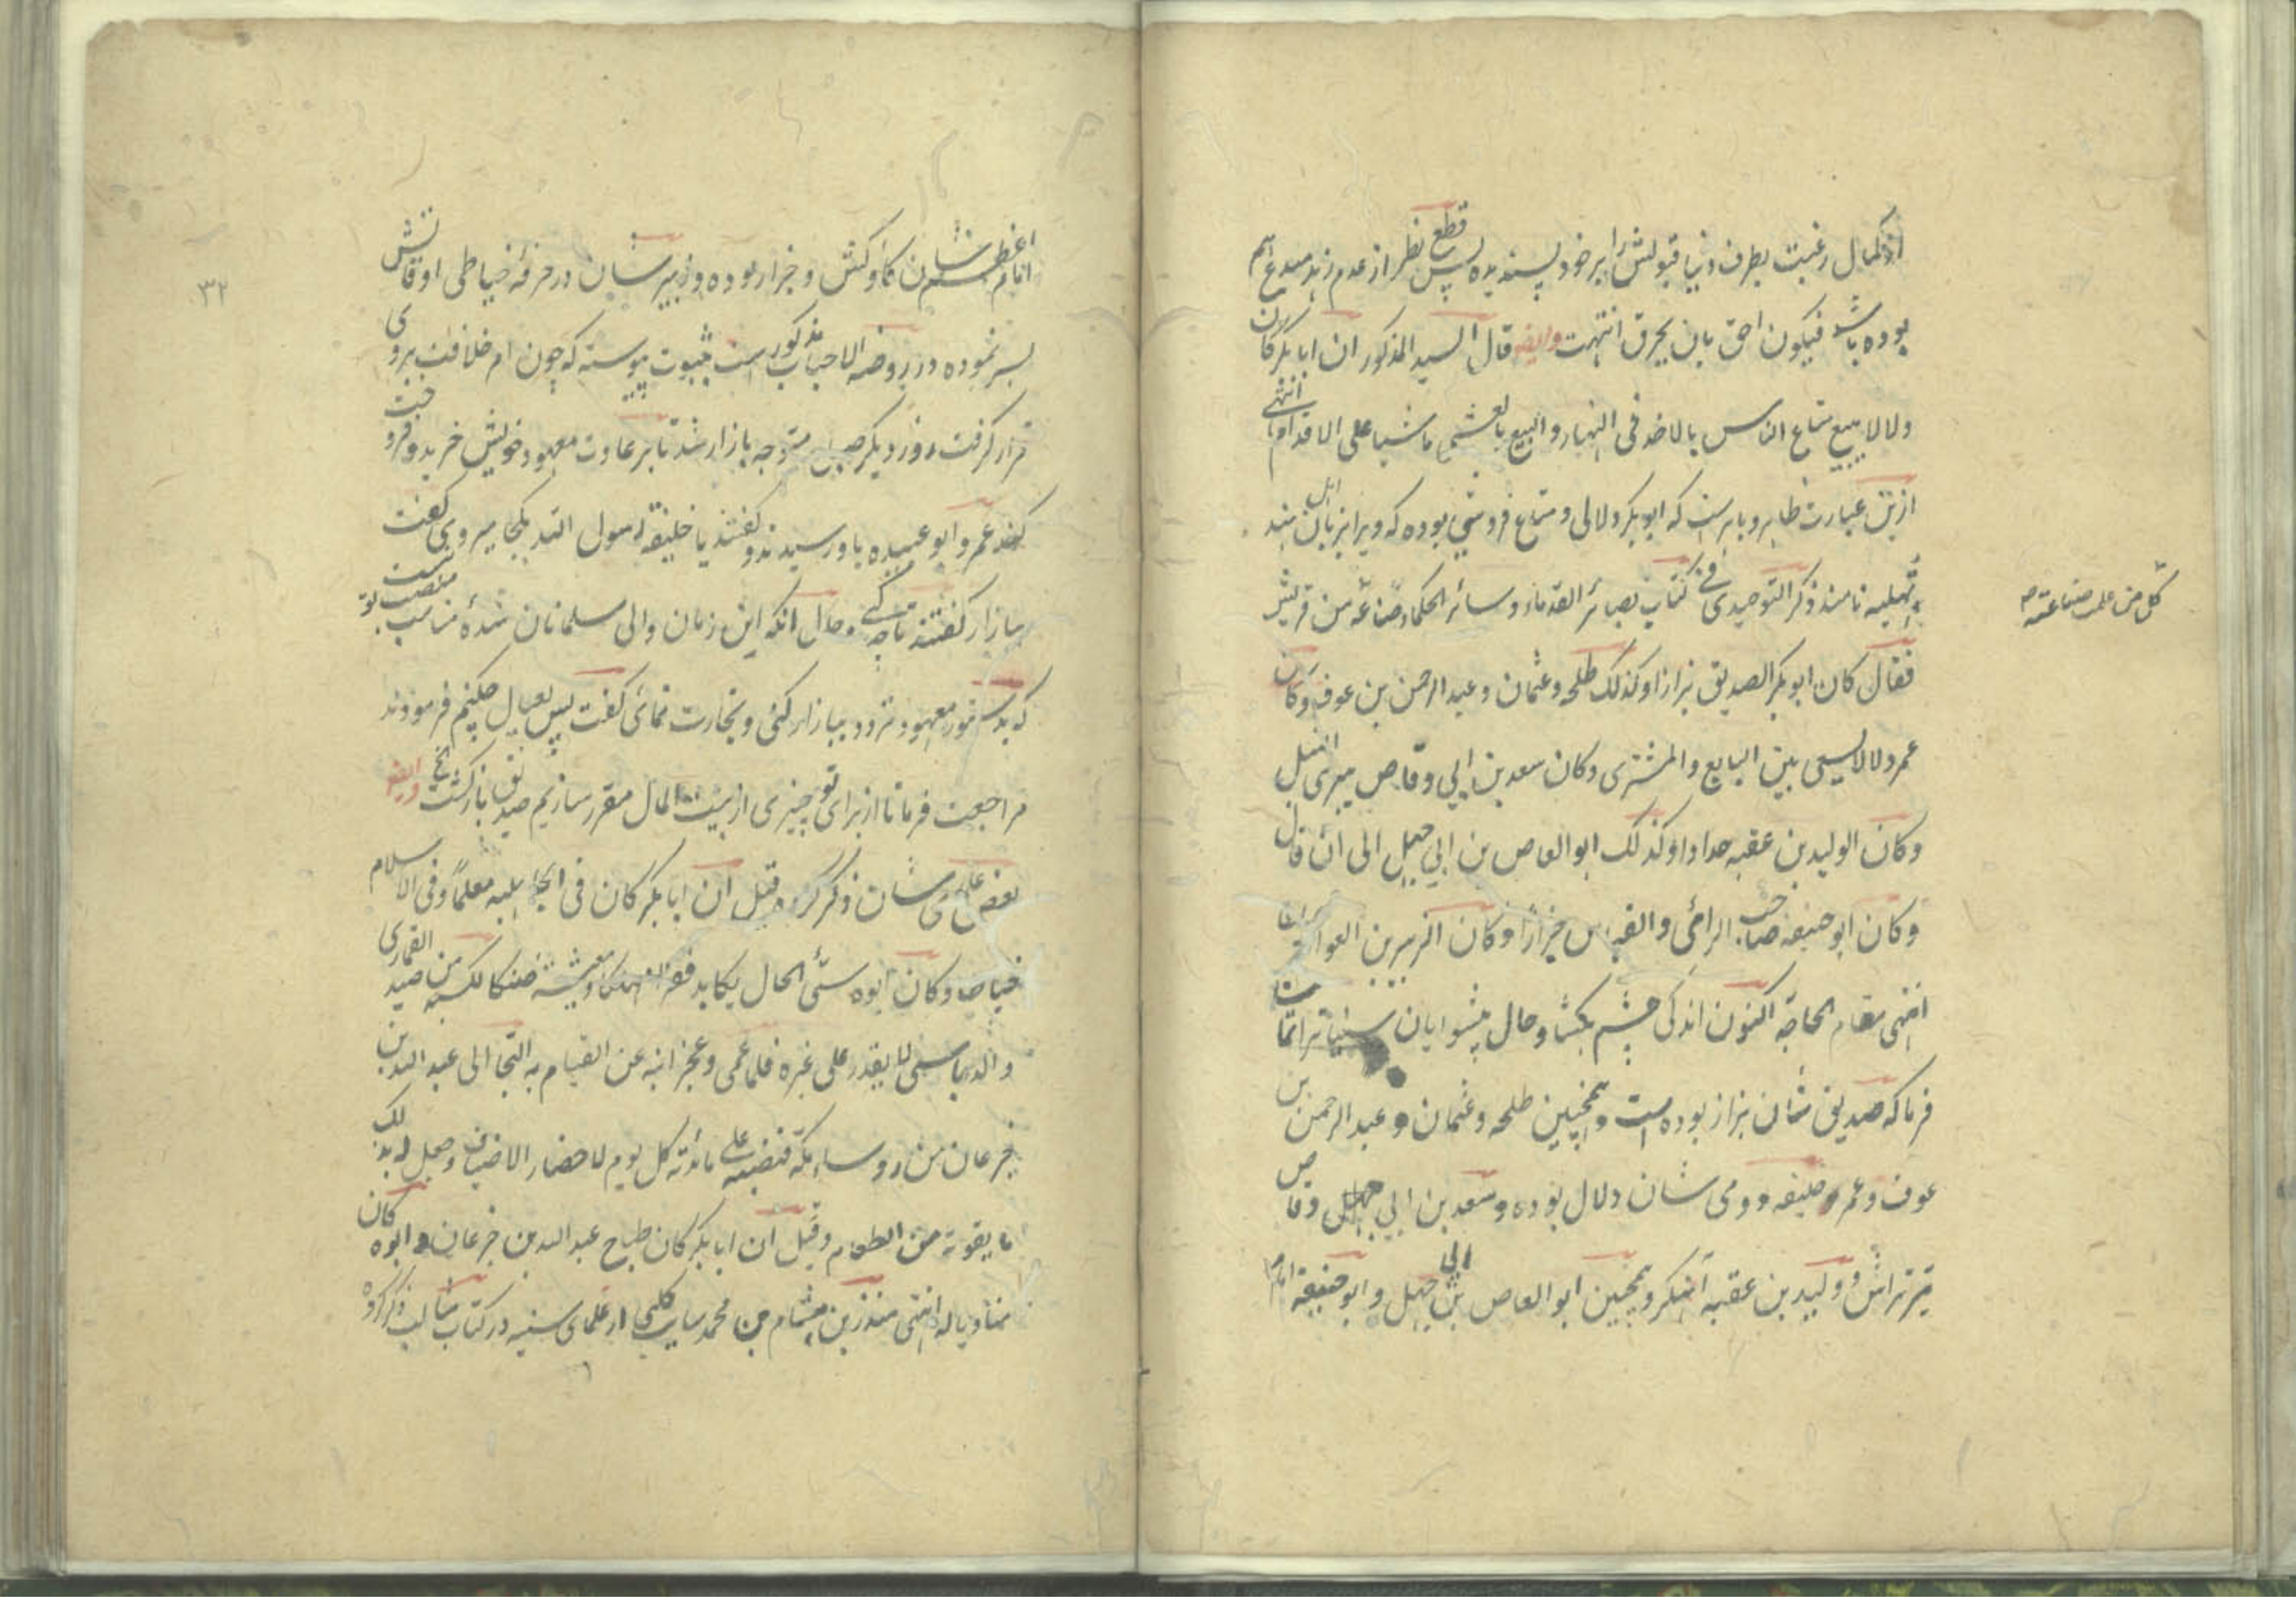 از کمال رغبت بطرف دنیا قبولش را بر خود پسندیده پس قطع نظر از عدم زهد مبدع هم
بوده باشد فیکون احق بان یحرق انتهت وایضا قال السید المذکور ان ابا بکر کان
دلالا یبیع متاع الناس بالاخذ فی النهار و البیع بالعشی ماشیا علی الاقدام انتهی
ازین عبارت ظاهر و باهرست که ابو بکر دلالی و متاع فروشی بوده که ویرا بزبان اهل هند
نامند ذکر التوحیدی فی کتاب بصائر القدماء و سائر الحکماء صناعة من قریش
کل من علمت صناعته
فقال کان ابو بکر الصدیق بزازا و کذلک طلحه و عثمان و عبد الرحمن بن عوف و کان
عمر دلالا یسعی بین البایع و المشتری و کان سعد بن ابی وقاص یبری النبل
و کان الولید بن عقبه حدادا و کذلک ابو العاص بن ابی جهل الی ان قال
و کان ابو حنیفه صاحب الرائی و القیاس خزازا و کان الزبیر بن العوام
انتهی مقام الحاجة اکنون اندکی چشم بکشا و حال پیشوایان سنیان تماشا
فرما که صدیق شان بزاز بوده است و همچنین طلحه و عثمان و عبد الرحمن بن
عوف و عمر خلیفه دومی شان دلال بوده و سعد بن ابی وقاص
تیر تراش و ولید بن عقبه آهنگر و همچنین ابو العاص بن ابی جهل و ابو حنیفه امام
امام اعظم شان کفش و خزاز بوده و زبیر شان در حرفه خیاطی اوقاتش
بسر نموده در روضه الاحباب مذکور است بثبوت پیوسته که چون امر خلافت بروی
قرار گرفت روز دیگر صبح متوجه بازار شد تا بر عادت معهود خویش خرید و فروخت
کند عمر و ابو عبیده باو رسیدند و گفتند یا خلیفة رسول الله بکجا میروی گفت
ببازار گفتند تا چه کنی و حال انکه این زمان والی مسلمانان شدهٔ مناسب منصب تو نیست
که بدستور معهود تردد ببازار کنی و تجارت نمائی گفت پس بعیال چکنم فرمودند
مراجعت فرما تا از برای تو چیزی از بیت المال مقرر سازیم صدیق بازگشت الخ وایضا
بعض علمای شان ذکر کرده قیل ان ابا بکر کان فی الجاهلیه معلما و فی الاسلام
خیاطا و کان ابوه سئ الحال یکابد فقرا و معیشة ضنکا لکسبه من صید القماری
و الدباسی لا یقدر علی غیره فلما عمی و عجز ابنه عن القیام به التجا الی عبد الله بن
جزعان من روساء مکة فنصبه علی مائدته کل یوم لاحضار الاضیاف و جعل له بذلک
ما یقوته من الطعام و قیل ان ابا بکر کان طباخ عبد الله بن جزعان و ابوه کان
منادیا له انتهی منذر بن هشام بن محمد سایب کلبی از علمای سنیه در کتاب مثالب ذکر کرده
۳۲